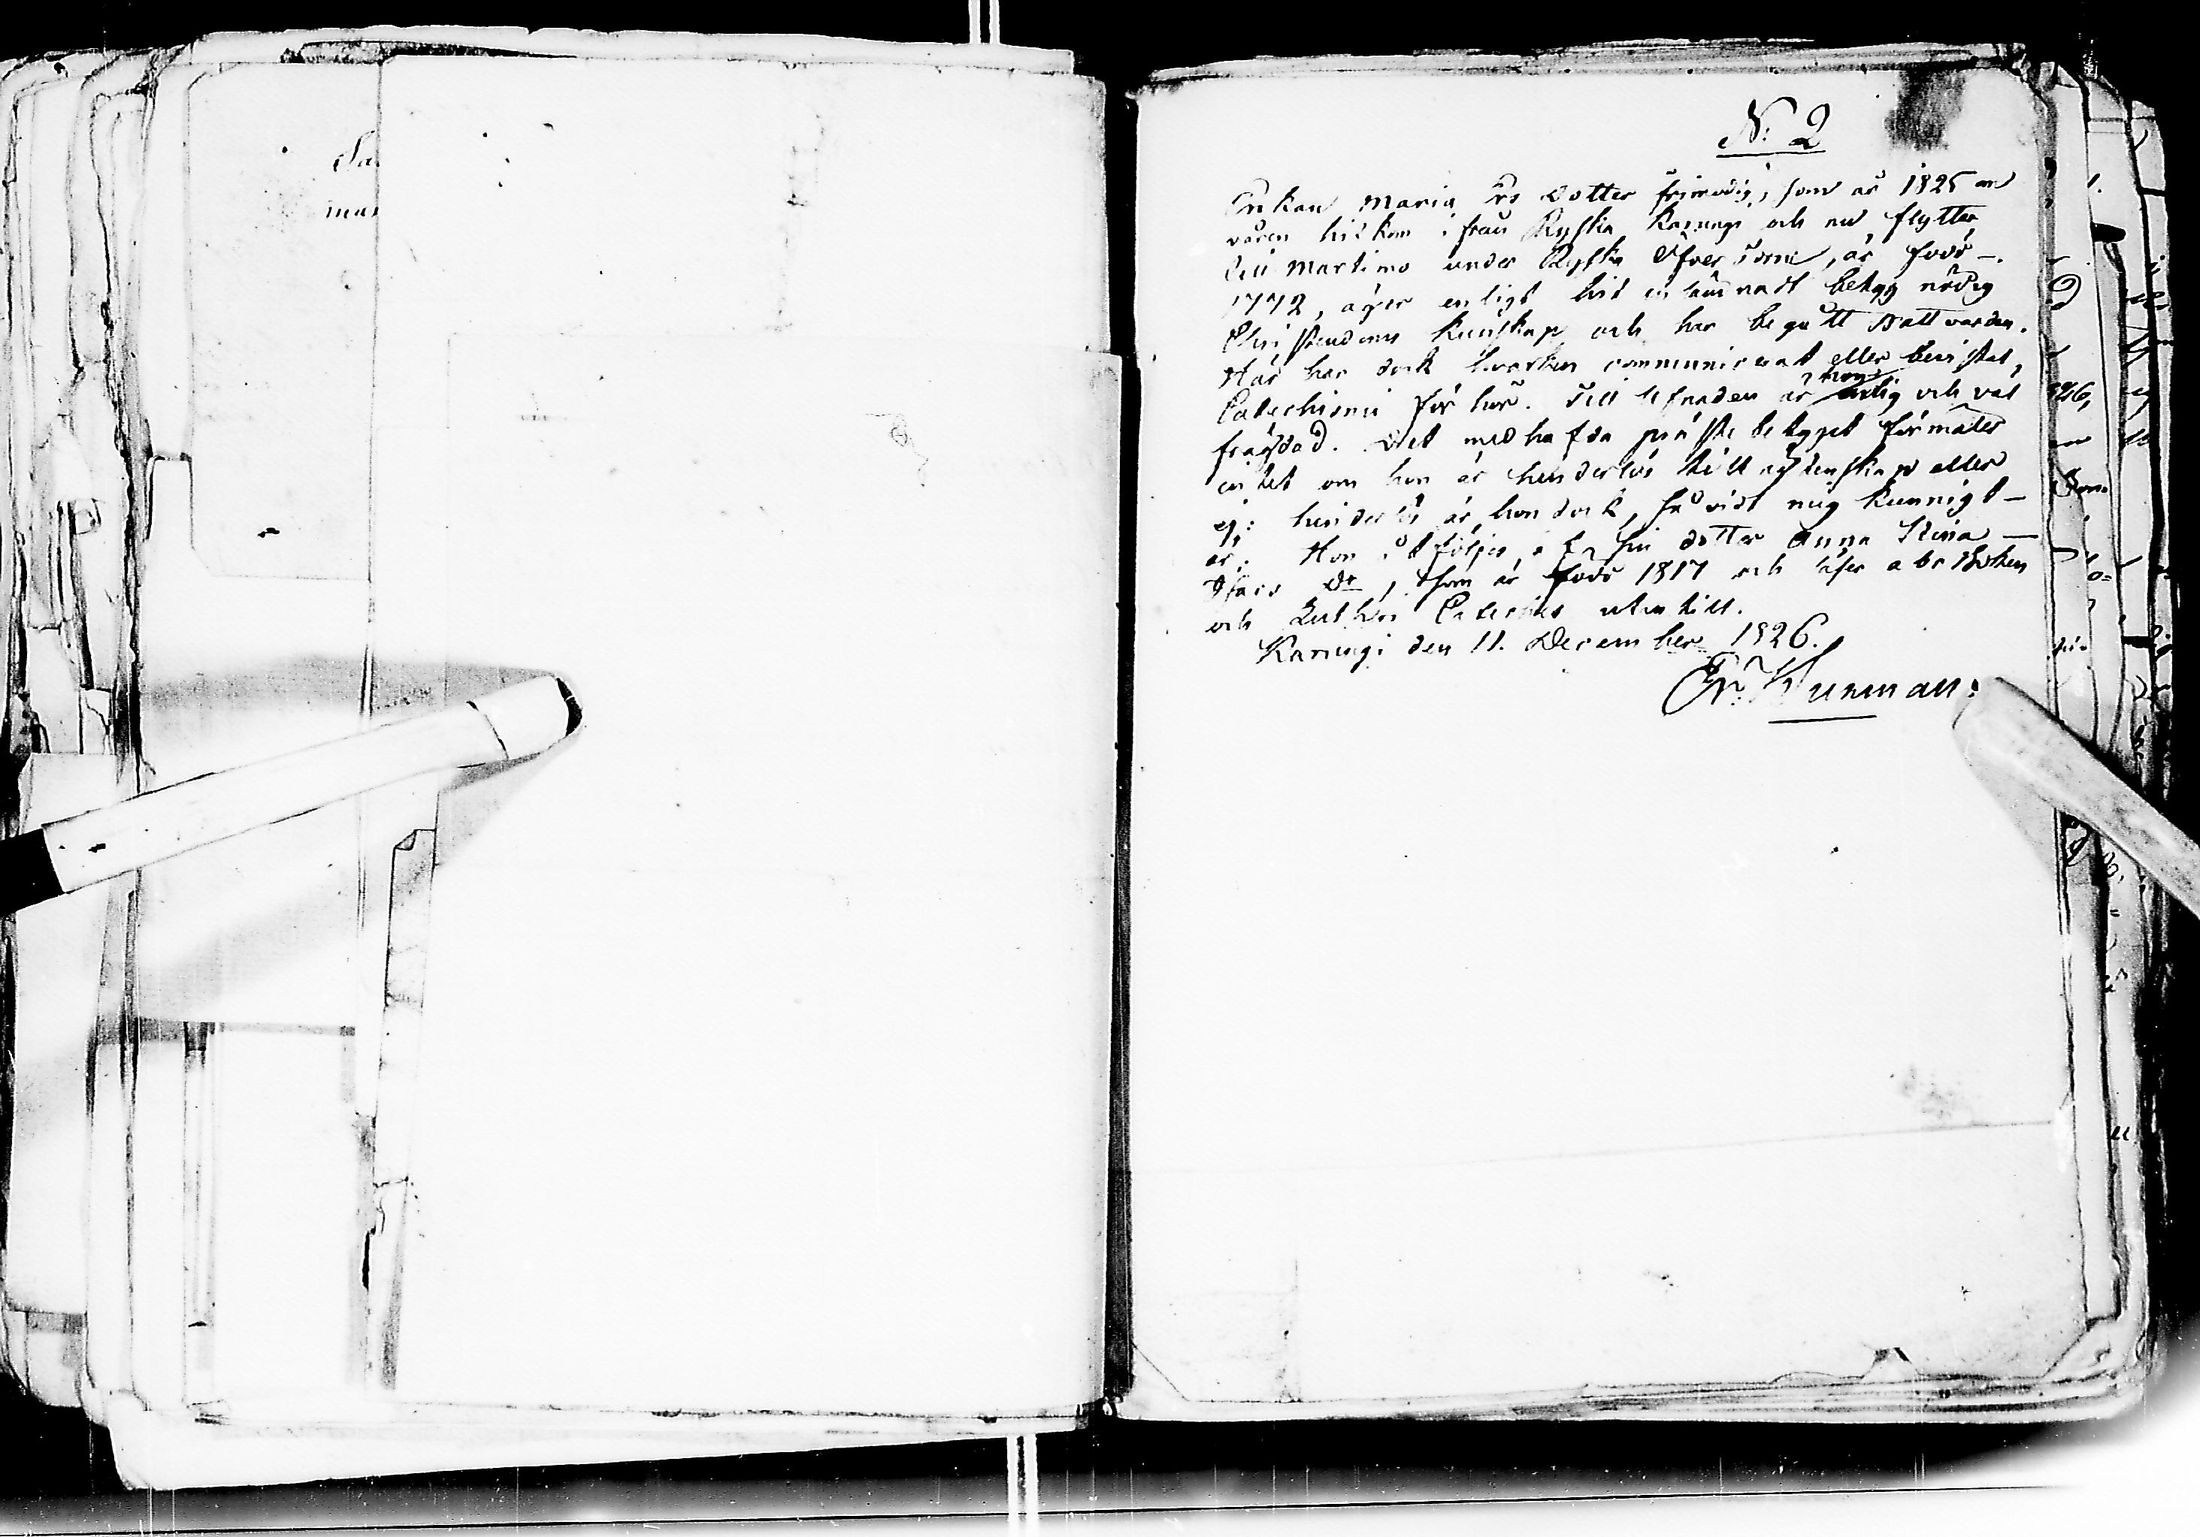 Sa
mar
N: 2
Enkan Maria Ers dotter frimodig, som år 1825 om
våren hitkom ifrån Ryska Karungi och nu flytter
till Martimo under Ryska Öfver Torne, är född –
1772, äger enligt hit inlämnadt betyg nödig
Christendoms kunskap och har begått Nattvarden.
Här har dock hvarken communicerat eller bevistat
Catechismi förhör. Till lefnaden är ärlig och väl
fräjdad. Det medhafda präste betyget förmäler
intet om hon är hinderlös till ägtenskap eller
ej: hinderlös är hon dock, så vidt mig kunnigt –
är. Hon åtföljes af sin dotter Anna Stina –
Isacs dr, som är född 1817 och läser abc Boken
och Luthers Cateches utantill.
Karungi den 11. December 1826.
Er. Wunman.